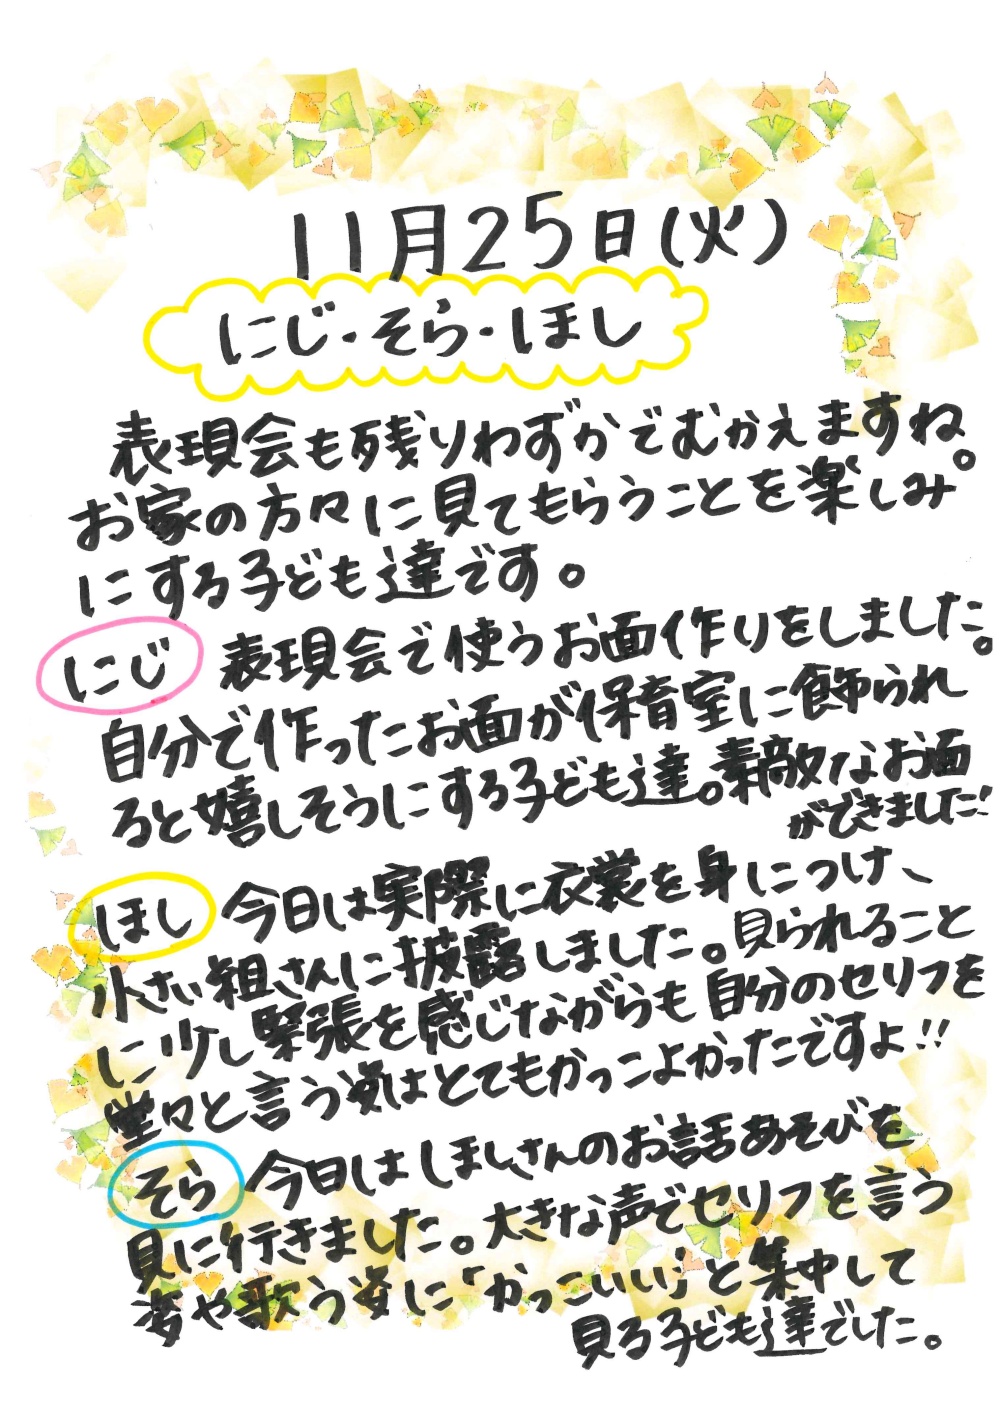 11月25日(火)
にじ・そら・ほし
表現会も残りわずかでむかえますね。
お家の方々に見てもらうことを楽しみ
にする子ども達です。
にじ 表現会で使うお面作りをしました。
自分で作ったお面が保育室に飾られ
ると嬉しそうにする子ども達。素敵なお面
ができました!
ほし 今日は実際に衣裳を身につけ、
小さい組さんに披露しました。見られること
に少し緊張を感じながらも自分のセリフを
堂々と言う姿はとてもかっこよかったですよ!!
そら 今日はほしさんのお話あそびを
見に行きました。大きな声でセリフを言う
姿や歌う姿に「かっこいい」と集中して
見る子ども達でした。